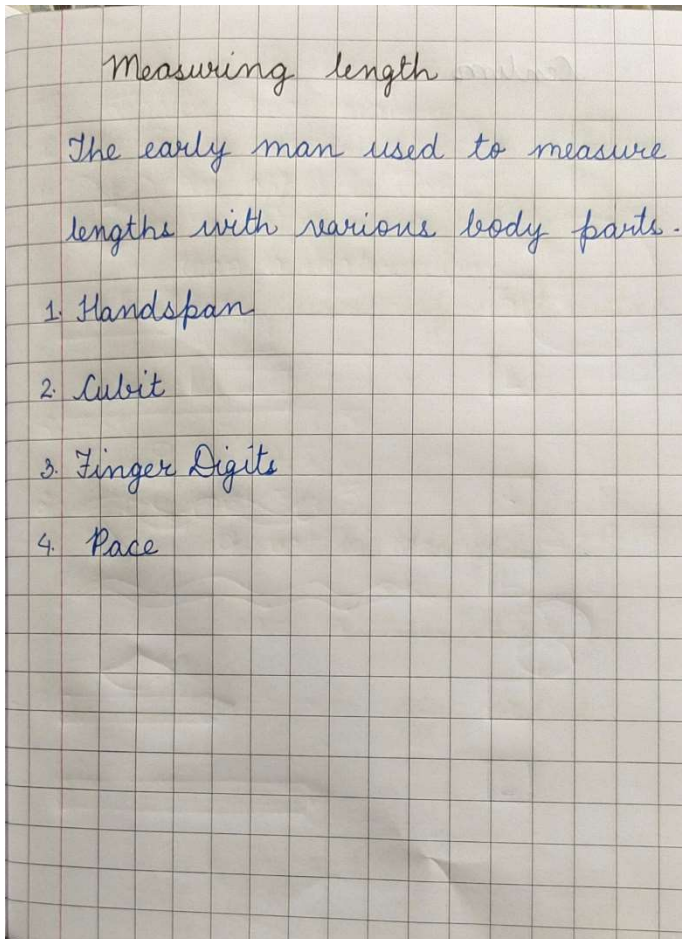 Measuring length
The early man used to measure
lengths with various body parts.
1. Handspan
2. Cubit
3. Finger Digits
4. Pace